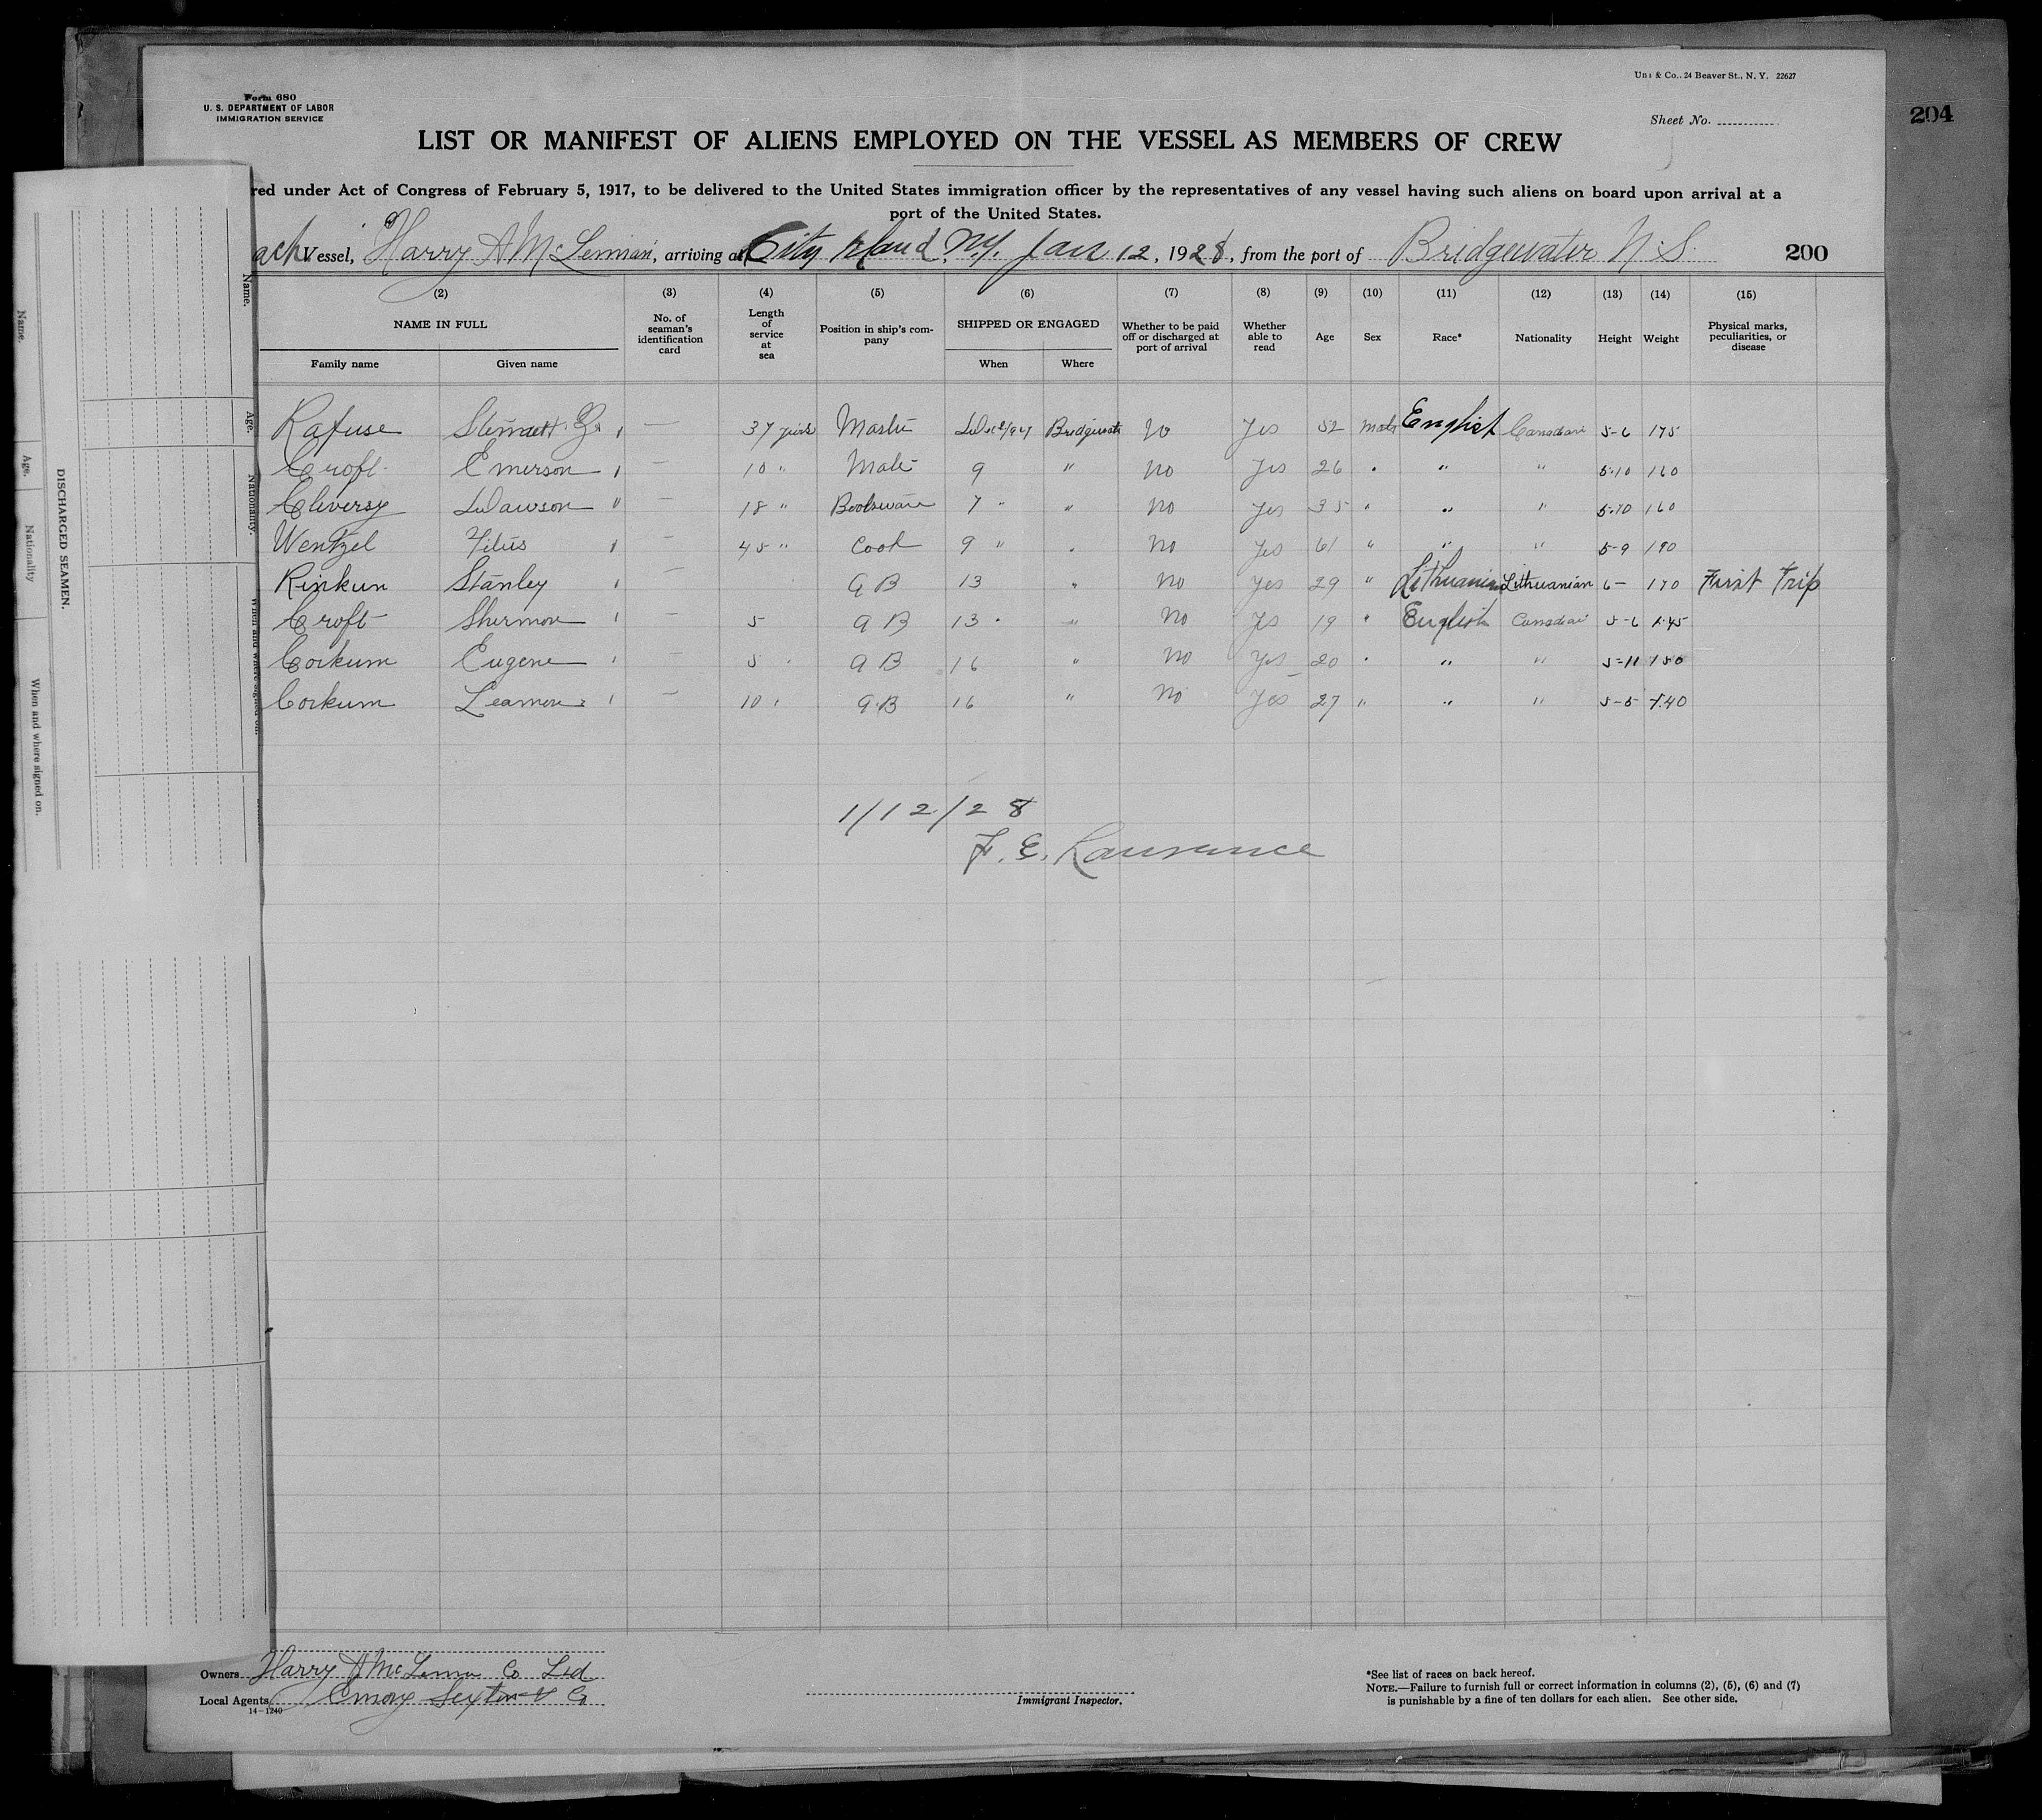 Uni & Co., 24 Beaver St., N. Y. 22627
Form 680
U. S. DEPARTMENT OF LABOR
IMMIGRATION SERVICE
Sheet No.
204
LIST OR MANIFEST OF ALIENS EMPLOYED ON THE VESSEL AS MEMBERS OF CREW
red under Act of Congress of February 5, 1917, to be delivered to the United States immigration officer by the representatives of any vessel having such aliens on board upon arrival at a
port of the United States.
Vessel, Harry A McLennan, arriving at City Island, N.Y. Jan 12, 1928, from the port of Bridgewater N.S. 200
(2) (3) (4) (5) (6) (7) (8) (9) (10) (11) (12) (13) (14) (15)
NAME IN FULL No. of seaman's identification card Length of service at sea Position in ship's company SHIPPED OR ENGAGED Whether to be paid off or discharged at port of arrival Whether able to read Age Sex Race* Nationality Height Weight Physical marks, peculiarities, or disease
Family name Given name When Where
Rafuse — 37 years Master No Yes 52 Male English Canadian 5-6 175
Croft Emerson — 10 " Mate 9 " No Yes 26 " " 5-10 160
Cleversy Dawson — 18 " 7 " " No Yes 35 " " " 5-10 160
Wentzel Titus — 45 " Cook 9 " No Yes 61 " " " 5-9 190
Rinkun Stanley — A B 13 " No Yes 29 " Lithuanian Lithuanian 6- 170 First Trip
Croft Shermon — 5 A B 13 " No Yes 19 " English Canadian 5-6 145
Corkum Eugene — 5 A B 16 " No Yes 20 " " 5-11 150
Corkum Leamon — 10 A B 16 " No Yes 27 " " " 5-5 140
1/12/28
F. E. Lawrence
Owners Harry A McLennan Co Ltd
Local Agents Emory Sexton & Co
14—1240
Immigrant Inspector.
*See list of races on back hereof.
NOTE.—Failure to furnish full or correct information in columns (2), (5), (6) and (7)
is punishable by a fine of ten dollars for each alien. See other side.
DISCHARGED SEAMEN.
Name.
Age.
Nationality
When and where signed on.
Name.
Age.
Nationality.